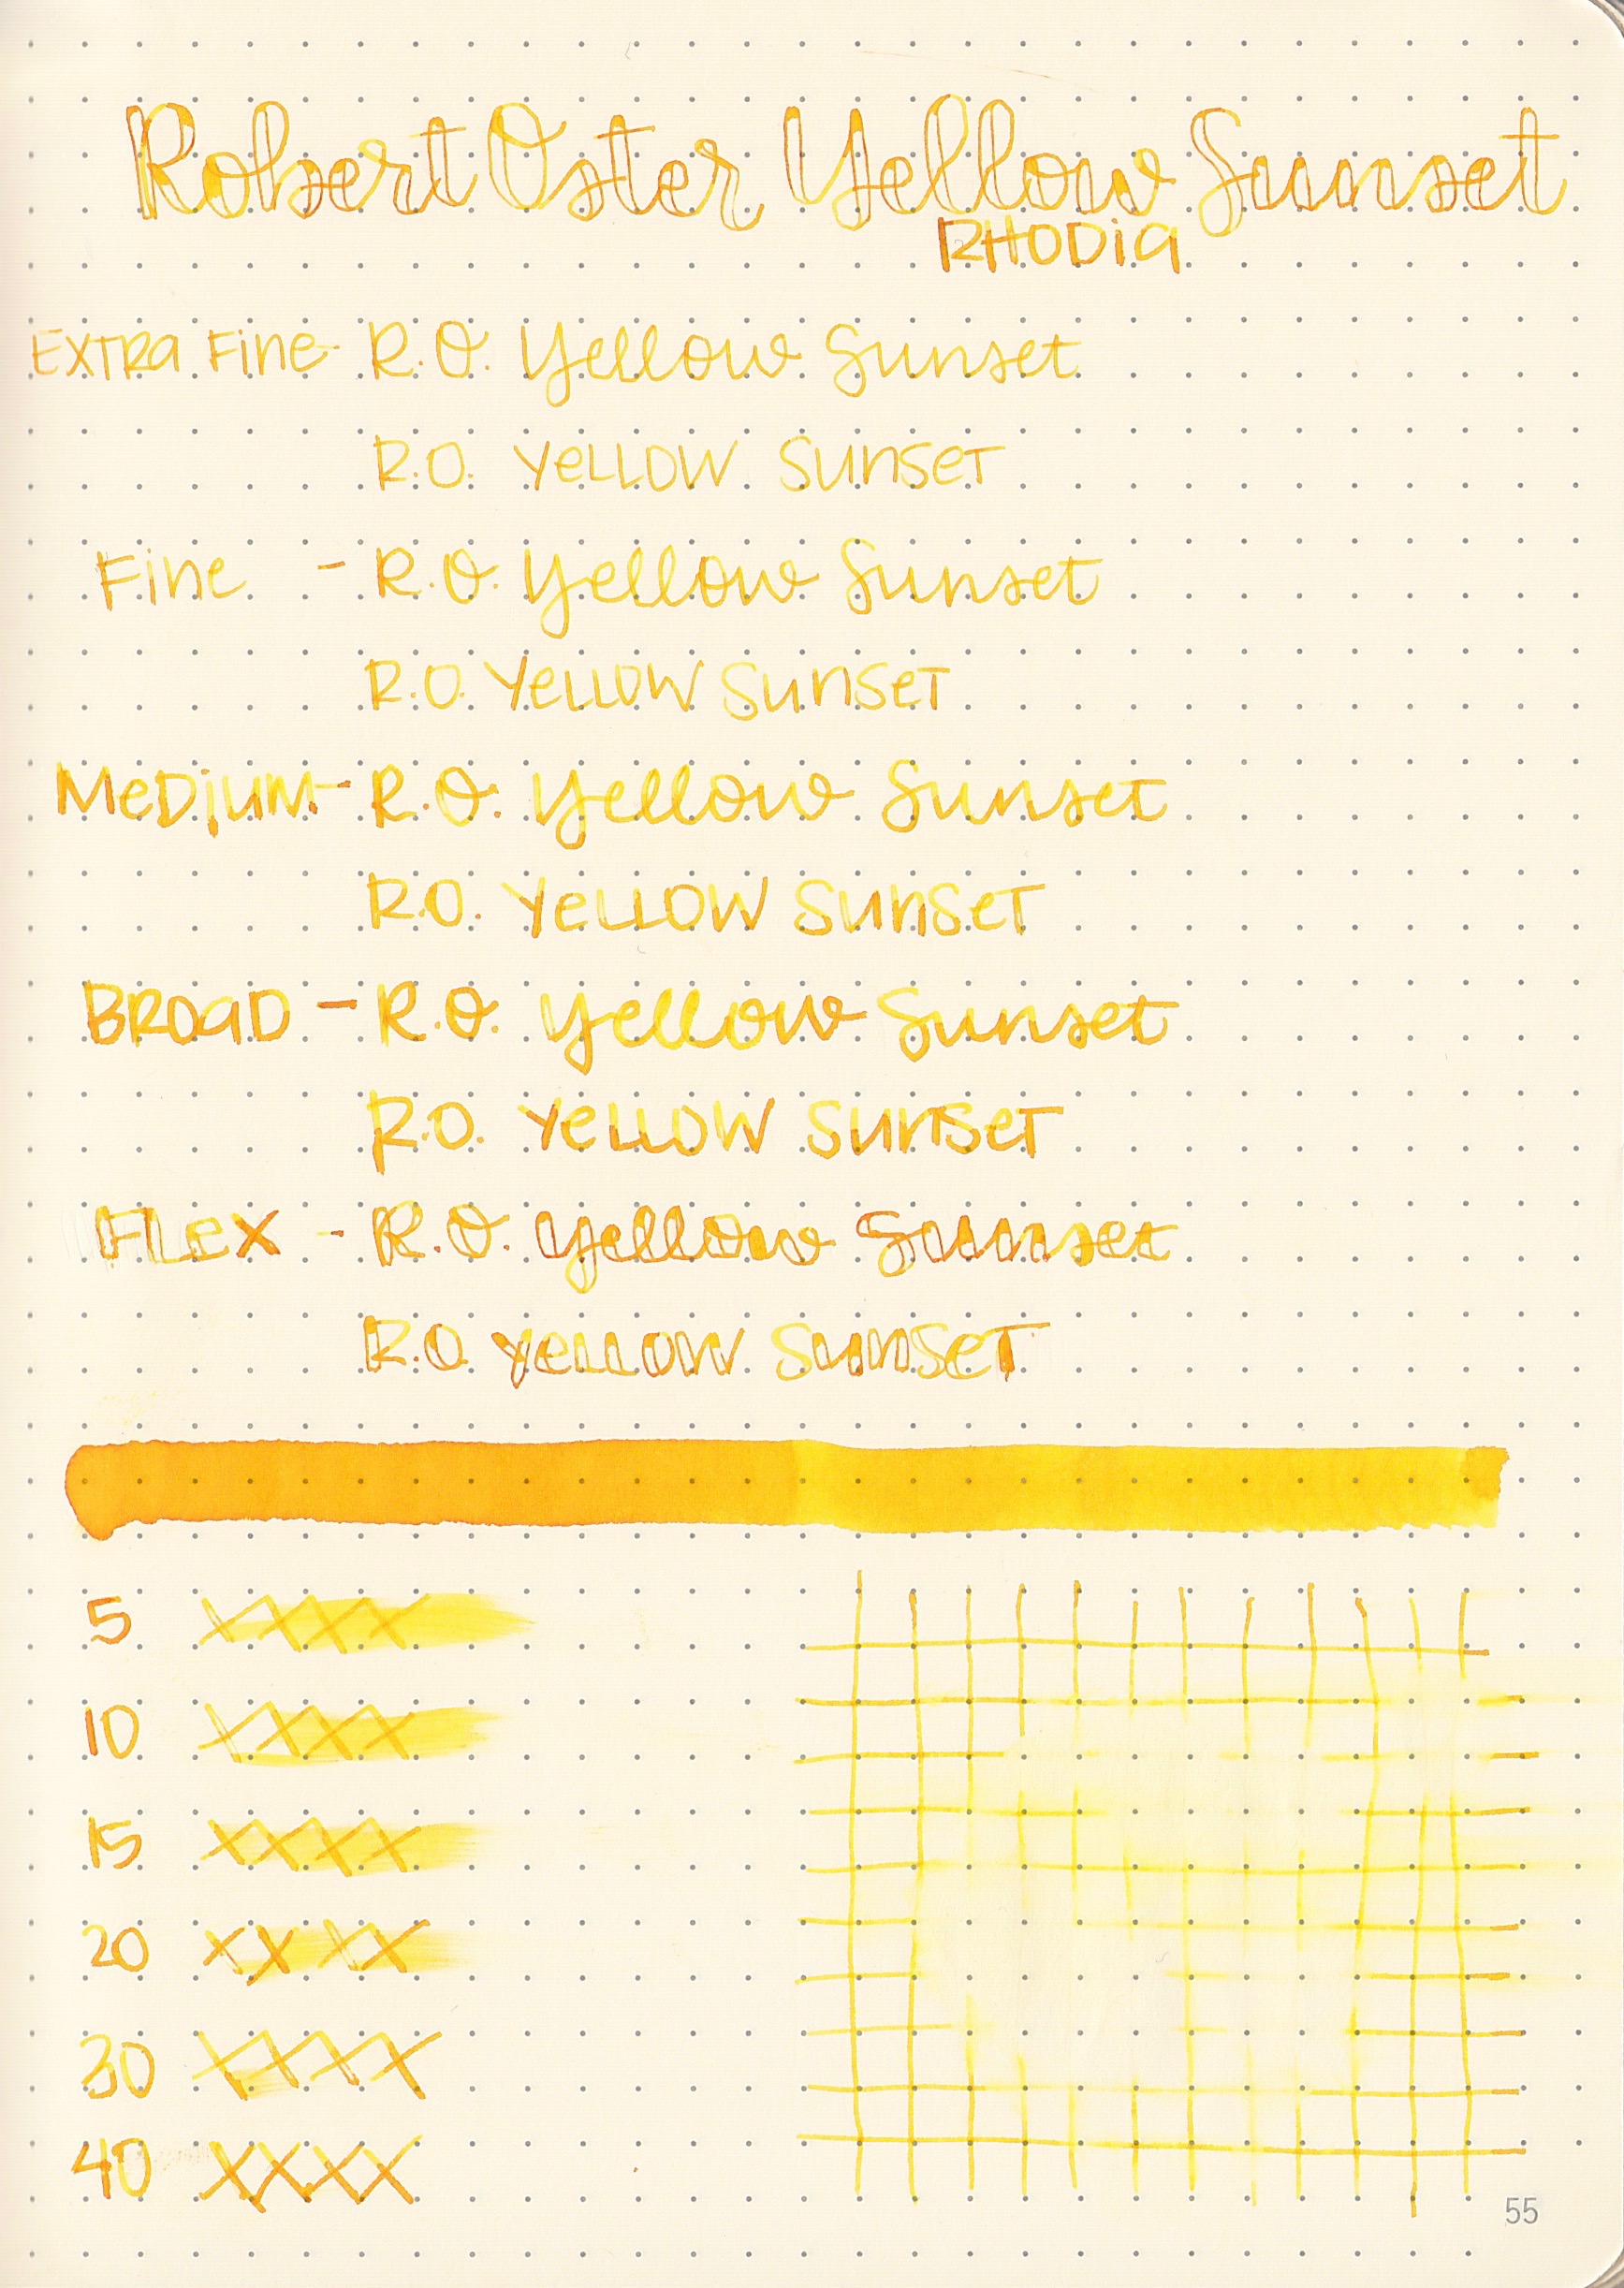 Robert Oster Yellow Sunset
RHODia
EXTRa Fine - R.O. Yellow Sunset
R.O. YeLLOW SunSeT
Fine - R.O. Yellow Sunset
R.O. YeLLOW SunSeT
MeDiuM - R.O. Yellow Sunset
R.O. YeLLOW SunSeT
BROaD - R.O. Yellow Sunset
R.O. YeLLOW SunSeT
FLeX - R.O. Yellow Sunset
R.O. YeLLOW SunSeT
5 XXXX
10 XXXX
15 XXXX
20 XXXX
30 XXXX
40 XXXX
55